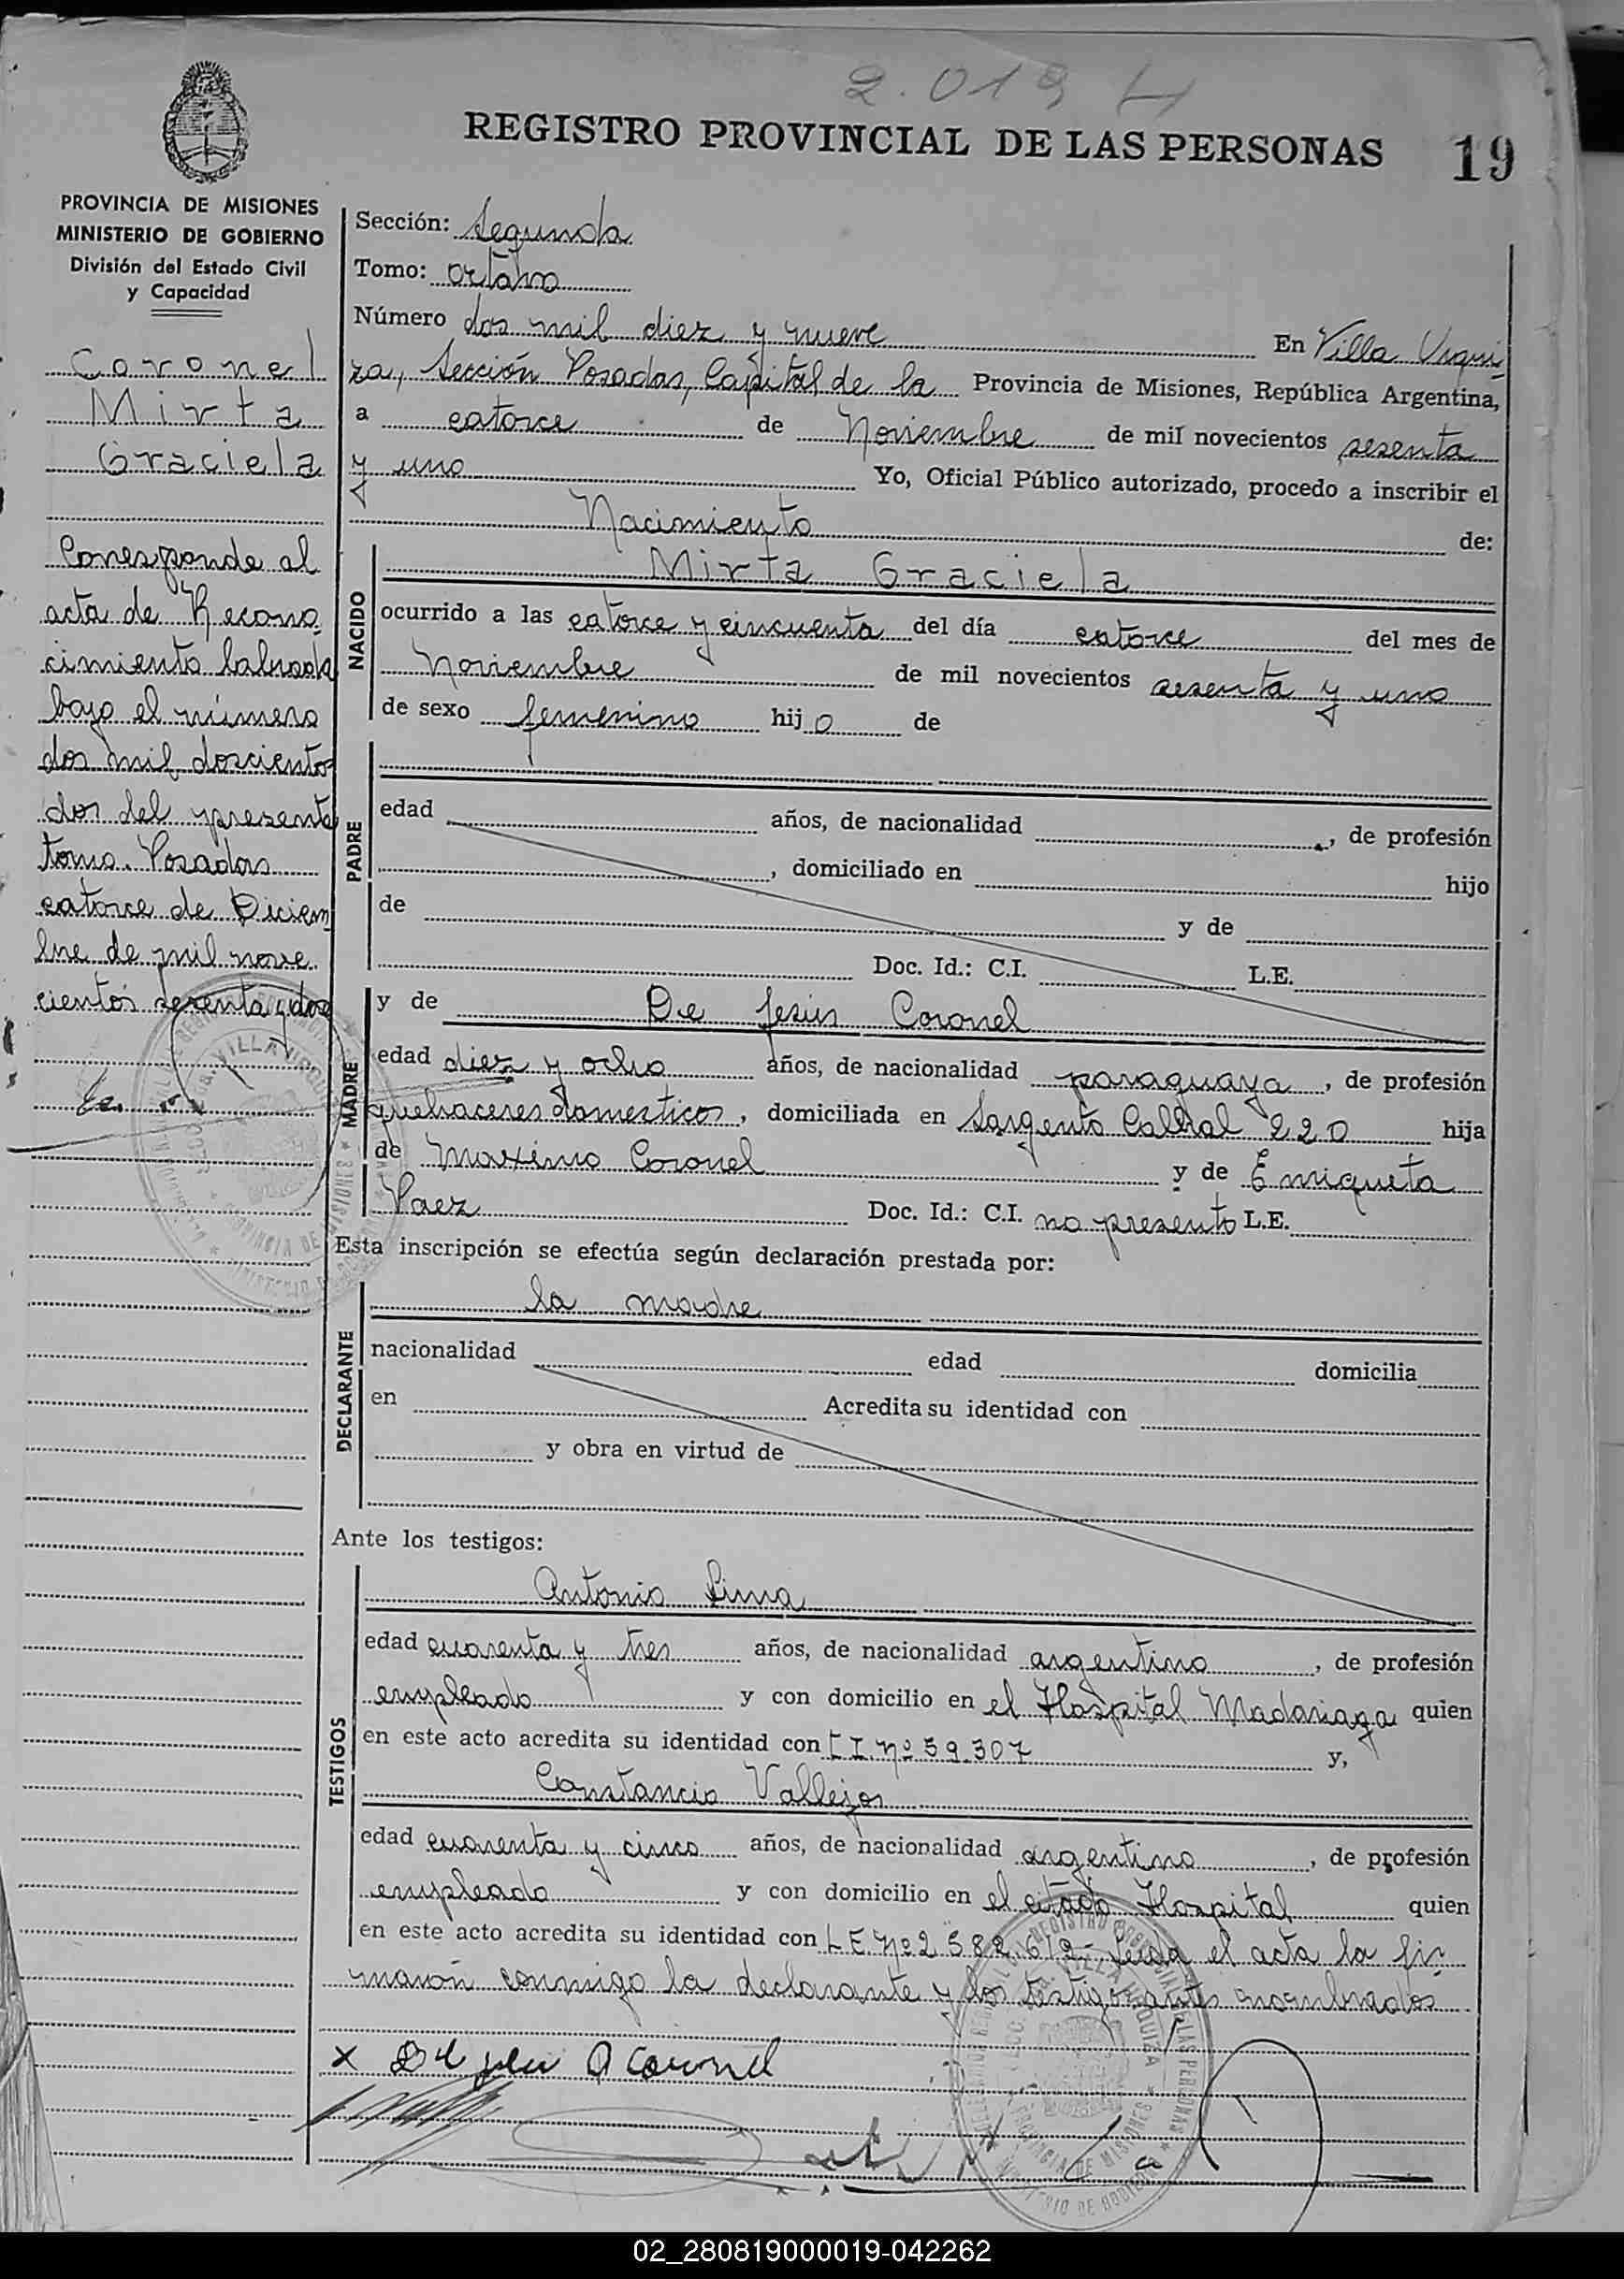 2.019 H
REGISTRO PROVINCIAL DE LAS PERSONAS 19
PROVINCIA DE MISIONES
MINISTERIO DE GOBIERNO
División del Estado Civil
y Capacidad
Coronel
Mirta
Graciela
Corresponde al
acta de Recono
cimiento labrada
bajo el número
dos mil doscientos
dos del presente
tomo. Posadas
catorce de Diciem
bre de mil nove
cientos sesenta y dos
Sección: Segunda
Tomo: octavo
Número dos mil diez y nueve En Villa Urqui-
za, Sección Posadas, Capital de la Provincia de Misiones, República Argentina,
a catorce de Noviembre de mil novecientos sesenta
y uno Yo, Oficial Público autorizado, procedo a inscribir el
Nacimiento de:
NACIDO
Mirta Graciela
ocurrido a las catorce y cincuenta del día catorce del mes de
Noviembre de mil novecientos sesenta y uno
de sexo femenino hij o de
PADRE
edad años, de nacionalidad , de profesión
, domiciliado en hijo
de y de
Doc. Id.: C.I. L.E.
MADRE
y de De Jesús Coronel
edad diez y ocho años, de nacionalidad paraguaya , de profesión
quehaceres domesticos , domiciliada en Sargento Cabral 220 hija
de Maximo Coronel y de Emiqueta
Paez Doc. Id.: C.I. no presento L.E.
Esta inscripción se efectúa según declaración prestada por:
DECLARANTE
la madre
nacionalidad edad domicilia
en Acredita su identidad con
y obra en virtud de
Ante los testigos:
TESTIGOS
Antonio Lima
edad cuarenta y tres años, de nacionalidad argentino , de profesión
empleado y con domicilio en el Hospital Madariaga quien
en este acto acredita su identidad con C I. Nº 59.307 y,
Constancio Vallejos
edad cuarenta y cinco años, de nacionalidad argentino , de profesión
empleado y con domicilio en el citado Hospital quien
en este acto acredita su identidad con L E. Nº 2 582.612- Leida el acta la fir-
maron conmigo la declarante y los testigos antes nombrados
x De Jesu A Coronel
02_280819000019-042262